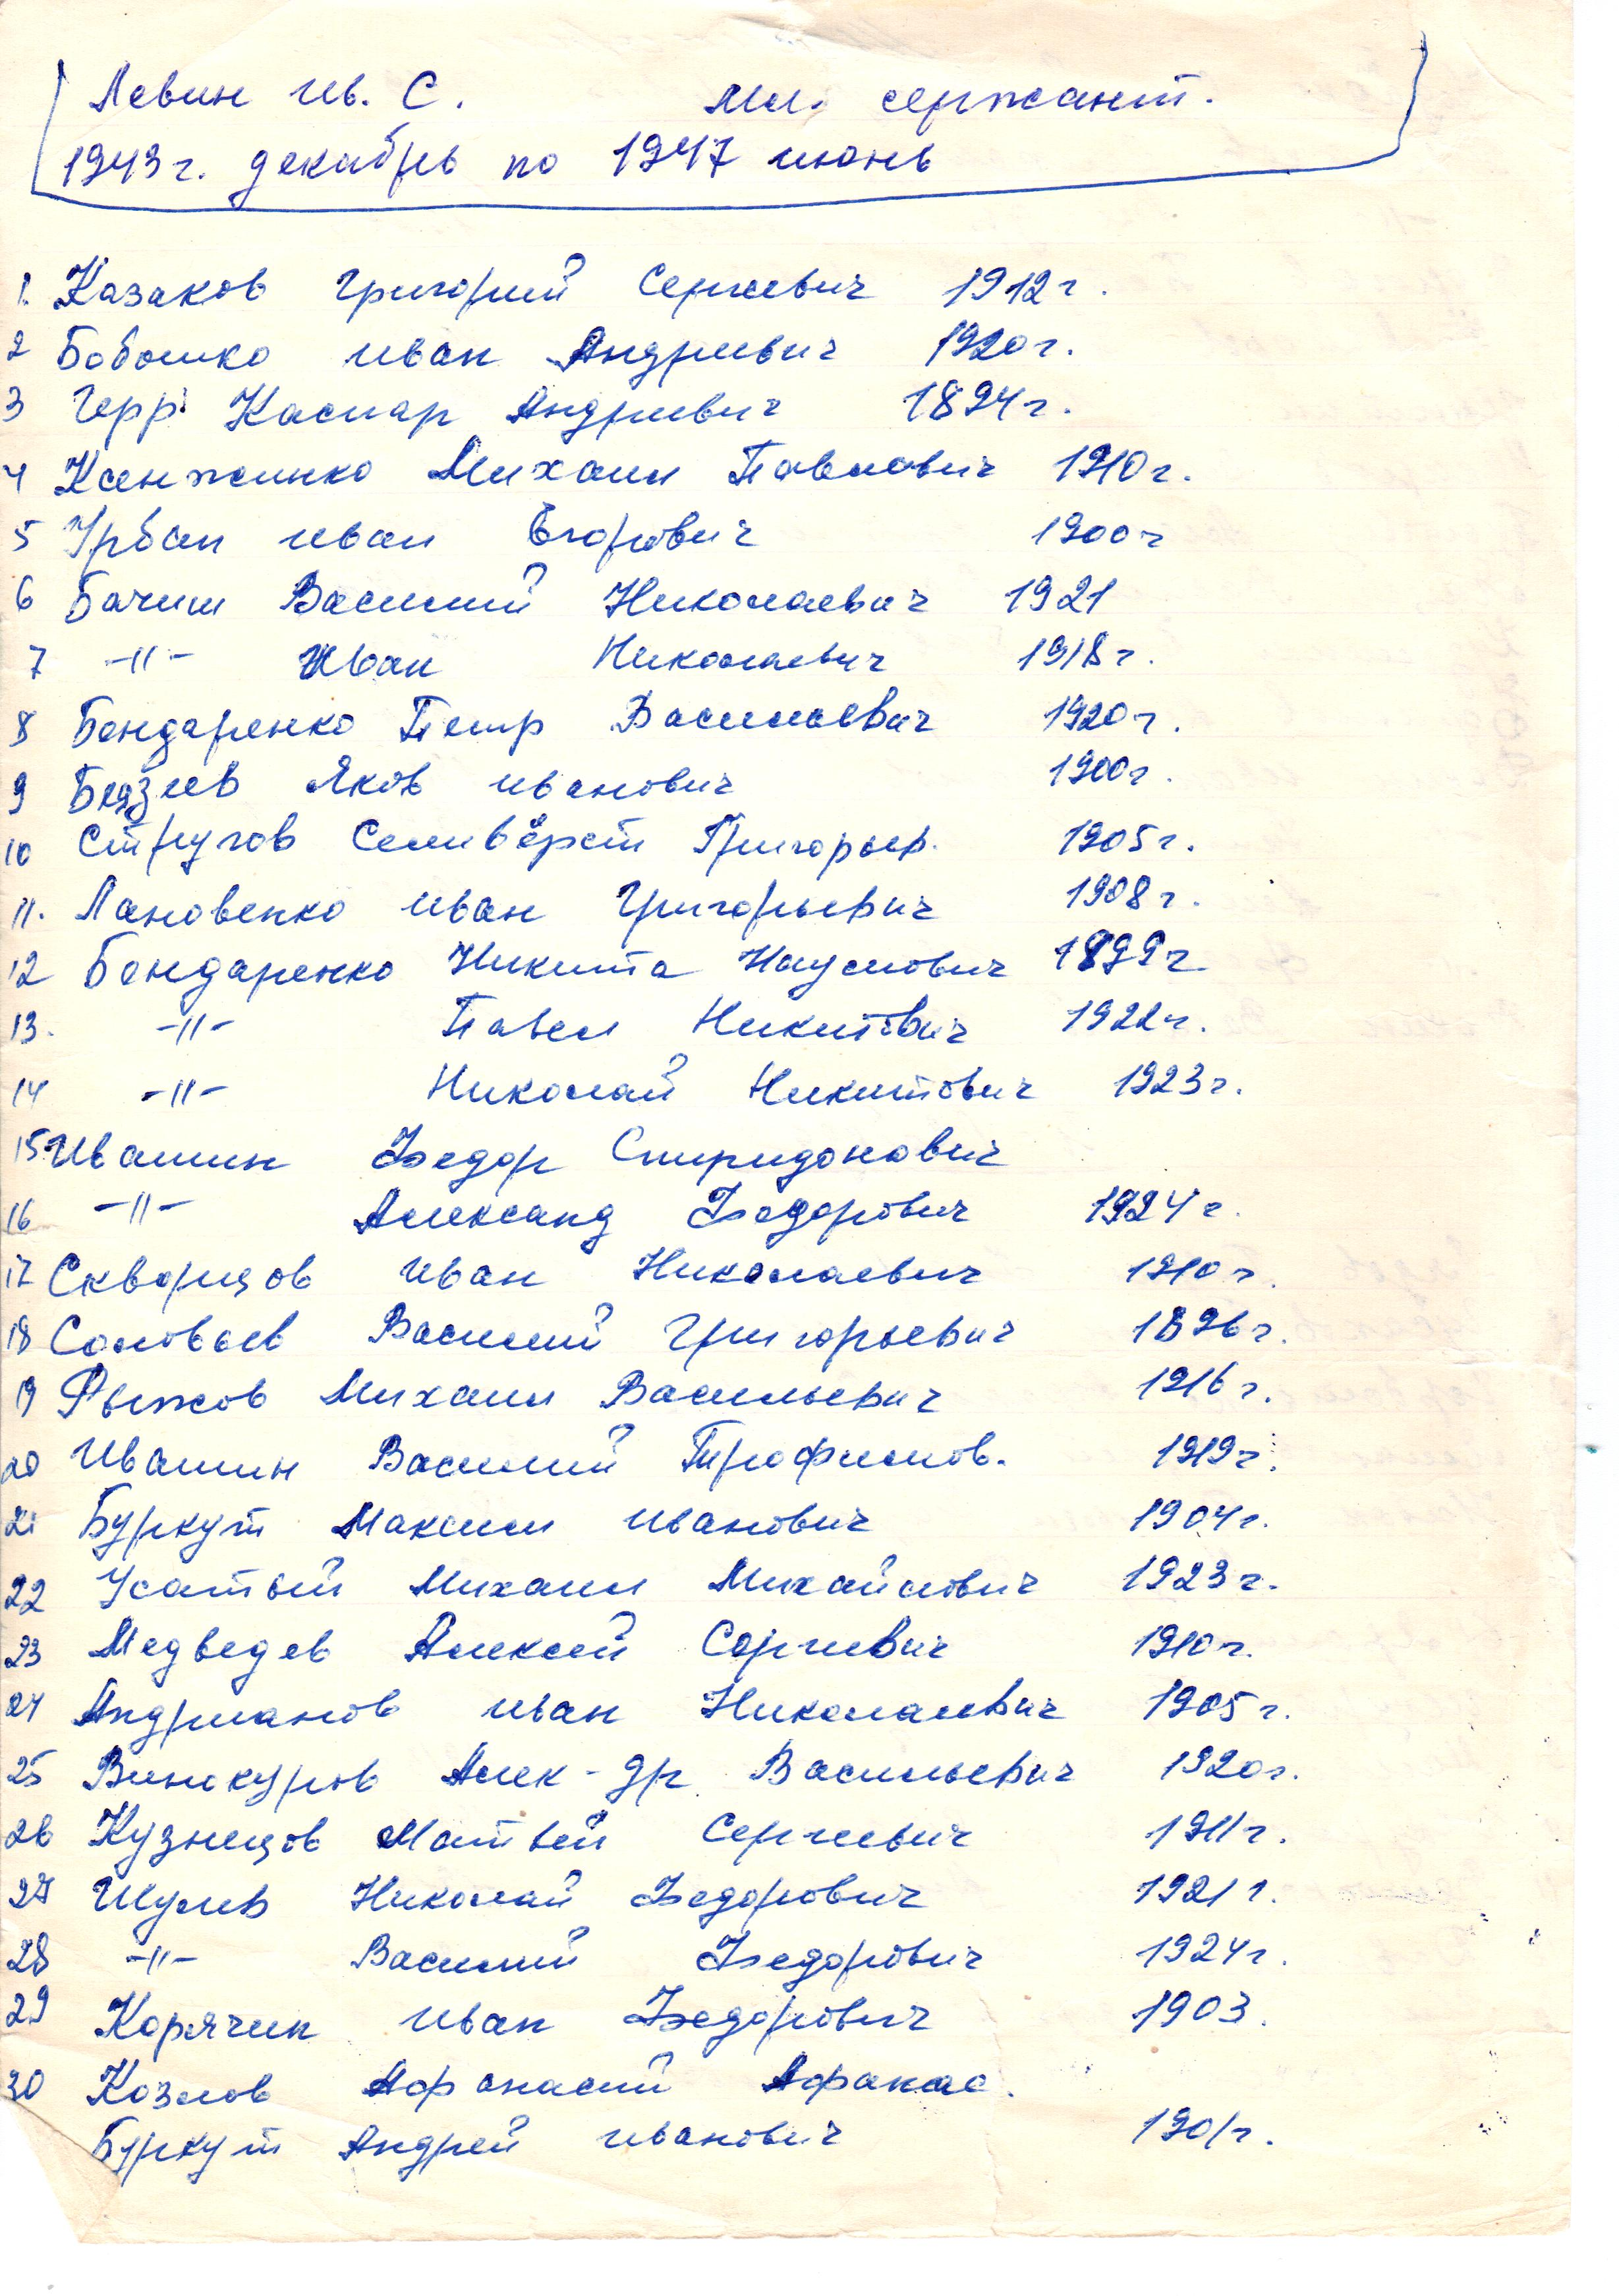 Левин Ив. С. Мл. сержант.
1943г. декабрь по 1947 июнь
1. Казаков Григорий Сергеевич 1912г.
2 Бобошко Иван Андреевич 1920г.
3 Герр Каспар Андреевич 1894г.
4 Ксенженко Михаил Павлович 1910г.
5 Урбан Иван Егорович 1900г
6 Бачиш Василий Николаевич 1921
7 -//- Иван Николаевич 1918г.
8 Бондаренко Петр Васильевич 1920г.
9 Яков Иванович 1900г.
10 Стругов Селивёрст Григорьев. 1905г.
11. Лановенко Иван Григорьевич 1908г.
12 Бондаренко Никита Наумович 1899г.
13. -//- Павел Никитович 1922г.
14 -//- Николай Никитович 1923г.
15 Ивашин Федор Спиридонович
16 -//- Александ Федорович 1924г.
17 Скворцов Иван Николаевич 1910г.
18 Соловьев Василий Григорьевич 1896г.
19 Рыжов Михаил Васильевич 1916г.
20 Ивашин Василий Трофимов. 1919г.
21 Буркут Максим Иванович 1904г.
22 Усатый Михаил Михайлович 1923г.
23 Медведев Алексей Сергеевич 1910г.
24 Андрианов Иван Николаевич 1905г.
25 Винокуров Алек-др Васильевич 1920г.
26 Кузнецов Матвей Сергеевич 1911г.
27 Шулев Николай Федорович 1921г.
28 -//- Василий Федорович 1924г.
29 Корячин Иван Федорович 1903.
30 Козлов Афанасий Афанас.
Буркут Андрей Иванович 1901г.